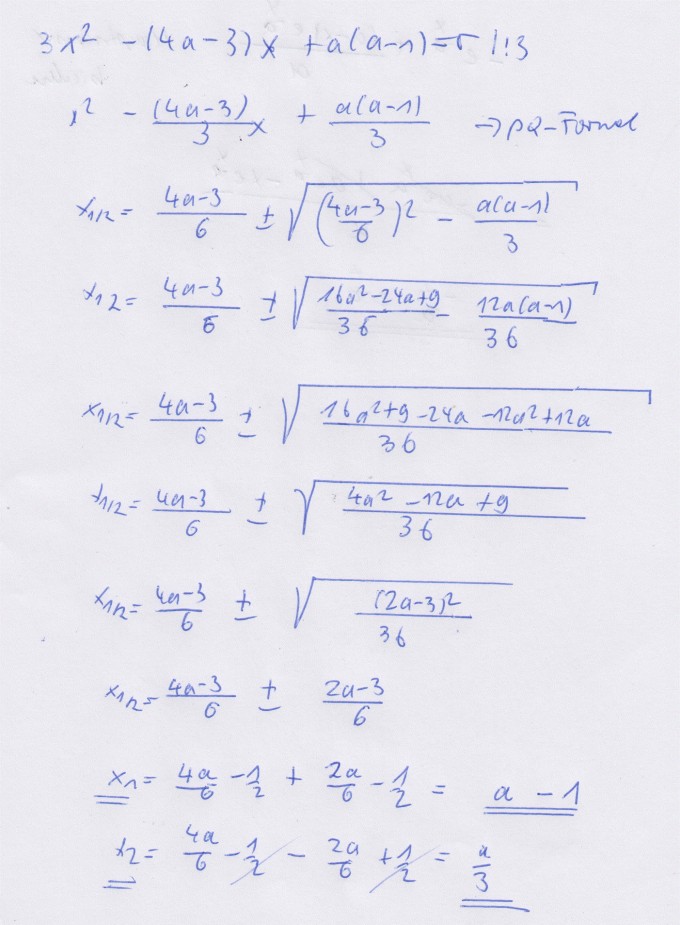 3x² - (4a-3)x + a(a-1) = 0 |:3
x² - (4a-3)/3 x + a(a-1)/3 → pq-Formel
x1/2 = (4a-3)/6 ± √((4a-3)/6)² - a(a-1)/3
x1 2 = (4a-3)/6 ± √(16a²-24a+9)/36 - 12a(a-1)/36
x1/2 = (4a-3)/6 ± √(16a²+9-24a-12a²+12a)/36
x1/2 = (4a-3)/6 ± √(4a²-12a+9)/36
x1/2 = (4a-3)/6 ± √(2a-3)²/36
x1/2 = (4a-3)/6 ± (2a-3)/6
x1 = 4a/6 - 1/2 + 2a/6 - 1/2 = a - 1
x2 = 4a/6 - 1/2 - 2a/6 + 1/2 = a/3